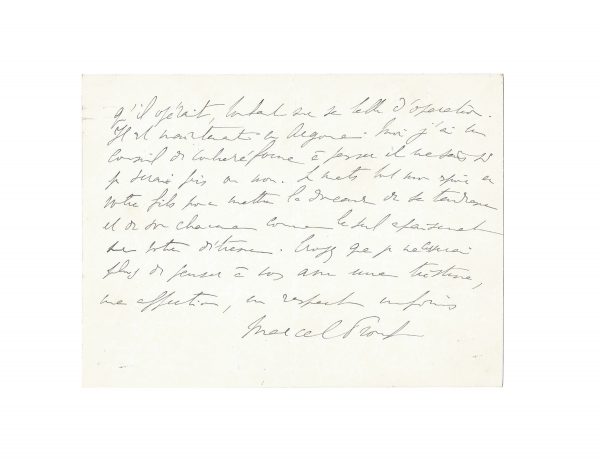 qu'il opérait, tombant sur sa table d'opération.
Il est maintenant en Argonne. Moi j'ai un
conseil de contre réforme à passer et ne sais si
je serai pris ou non. Je mets tout mon espoir en
votre fils pour mettre la douceur de sa tendresse
et de son charme comme le seul apaisement
sur votre détresse. Croyez que je ne cesserai
plus de penser à vous avec une tristesse,
une affection, un respect infinis
Marcel Proust